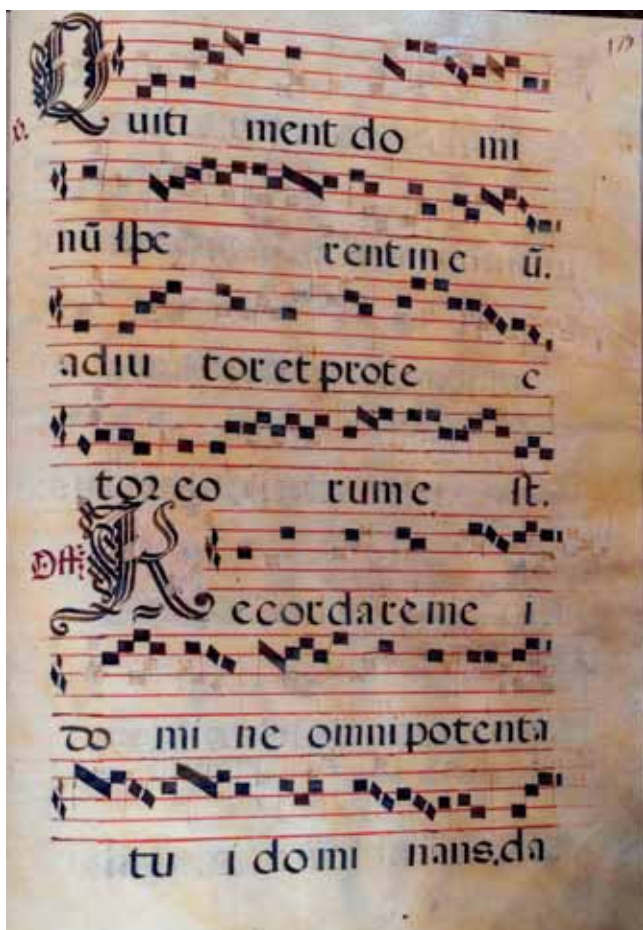 173
℣. Qui ti ment do mi
nū spe rent in e ū.
adiu tor et prote c
tor eo rum e st.
Off. Recordare me i
do mi ne omni potenta
tu i do mi nans. da